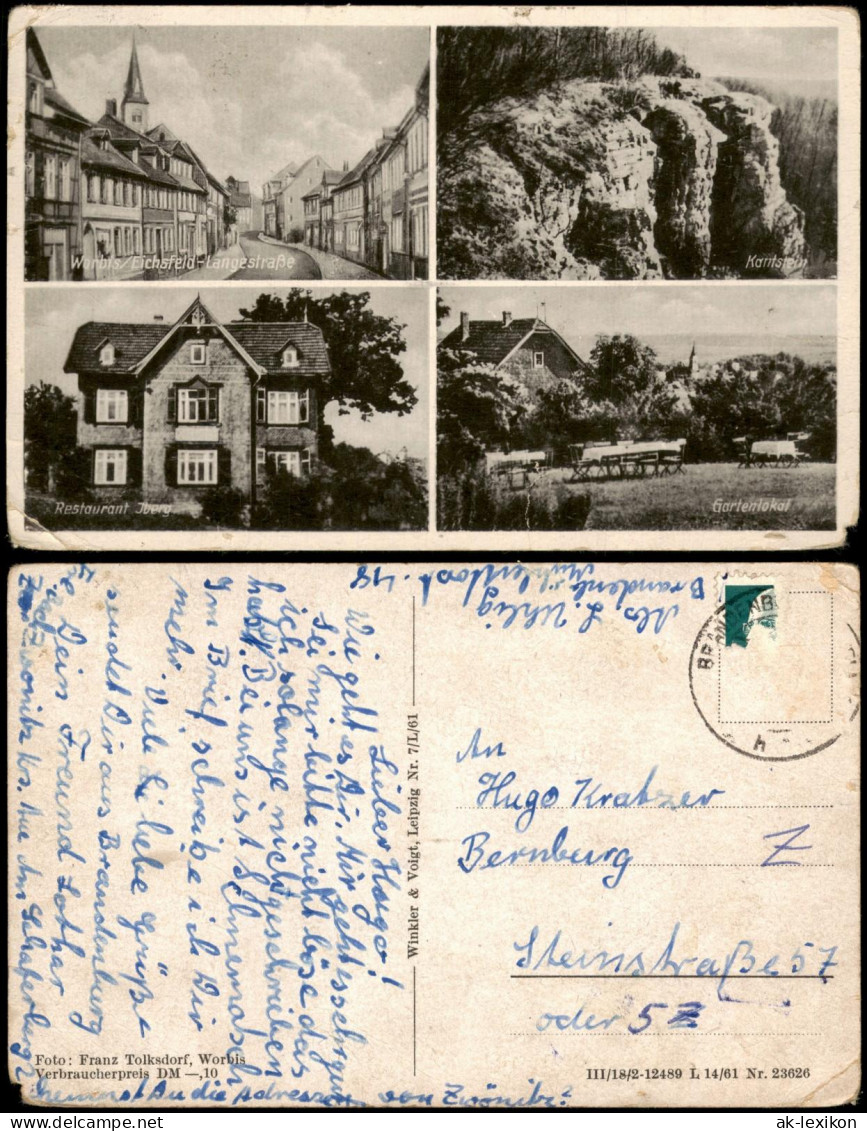 Worbis/Eichsfeld-Langestraße
Kantstein
Restaurant Iberg
Gartenlokal
Abs. L. Uhlig
Brandenb.
48
BRANDENBU
h
Lieber Hugo!
Wie geht es Dir. Mir geht es sehr gut
Sei mir bitte nicht böse das
ich solange nicht geschrieben
habe. Bei uns ist Schneematsch
Im Brief schreibe ich Dir
mehr.
Viele liebe Grüße
sendet Dir aus Brandenburg
Dein Freund Lothar
Zwönitz Krs. Aue Am Schafe
Winkler & Voigt, Leipzig Nr. 7/L/61
An
Hugo Kratzer
Bernburg
Z
Steinstraße 57
oder 52
Foto: Franz Tolksdorf, Worbis
Verbraucherpreis DM —,10
An die Adresse von Zwönitz?
III/18/2-12489 L 14/61 Nr. 23626
ak-lexikon